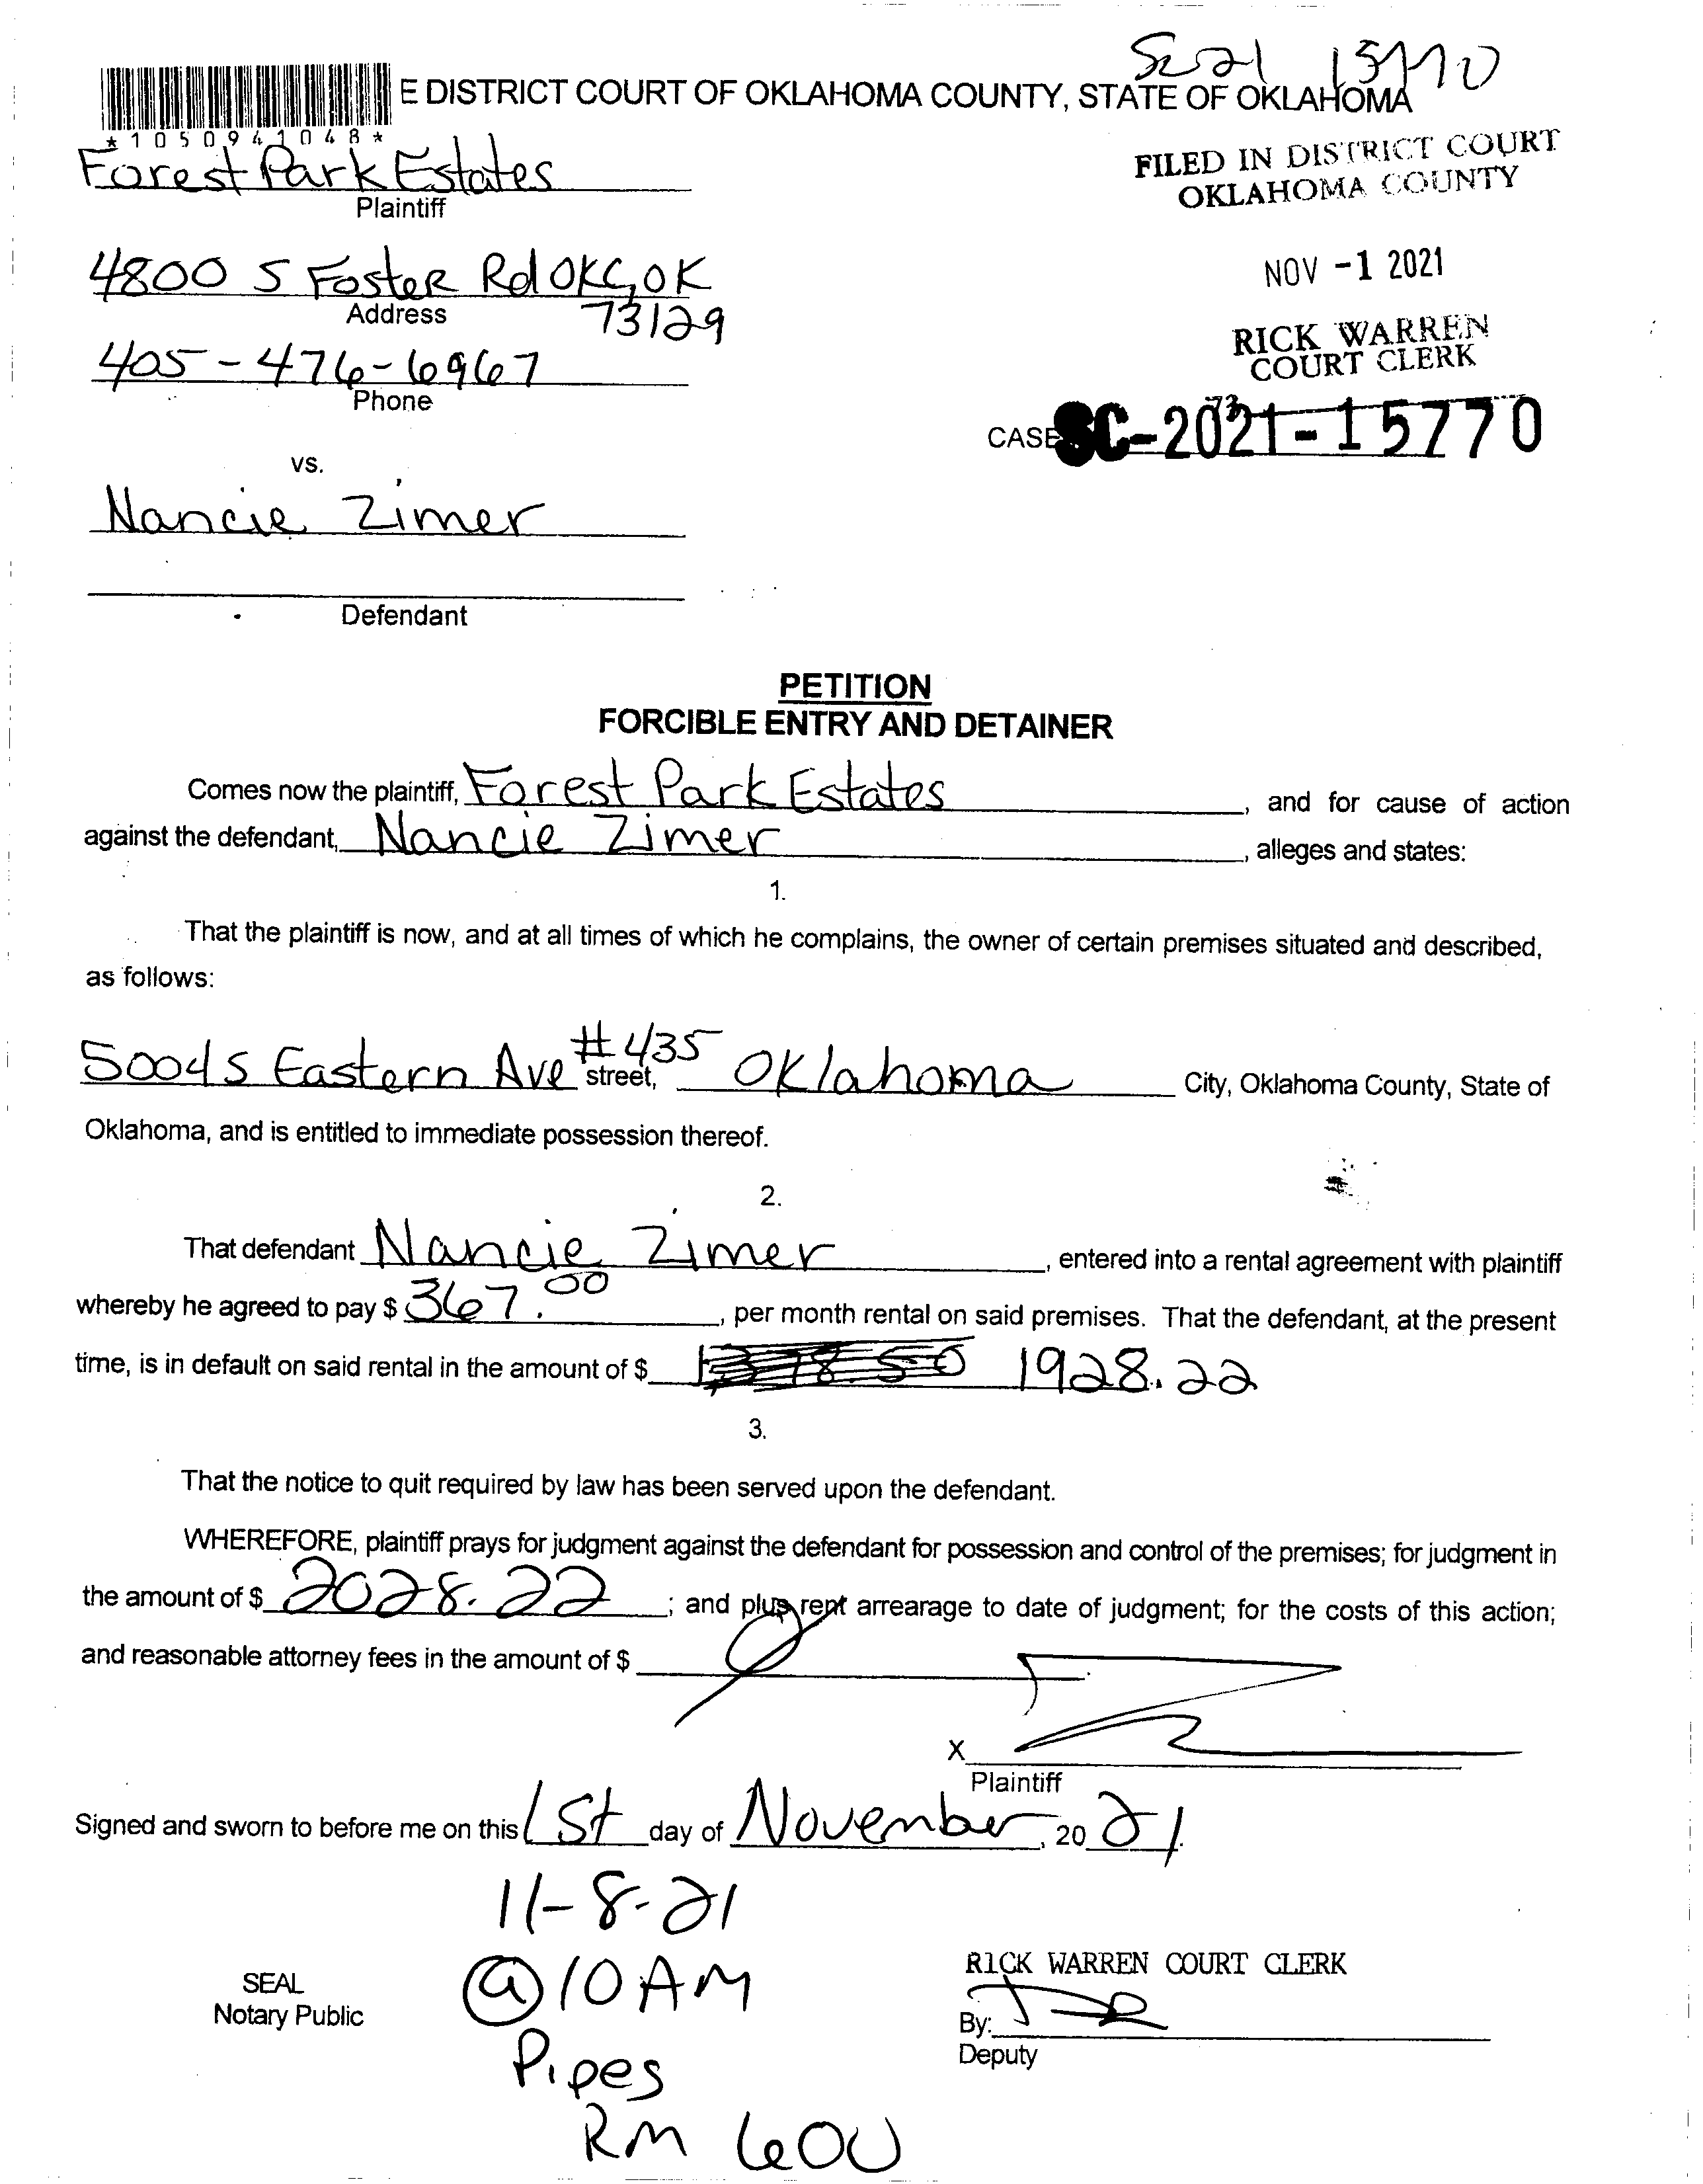 SC 21 15770
E DISTRICT COURT OF OKLAHOMA COUNTY, STATE OF OKLAHOMA
*1050941048*
Forest Park Estates
Plaintiff
FILED IN DISTRICT COURT
OKLAHOMA COUNTY
4800 S Foster Rd OKC, OK
Address
73129
NOV -1 2021
405-476-6967
Phone
RICK WARREN
COURT CLERK
73
CASE SC-2021-15770
vs.
Nancie Zimer
Defendant
PETITION
FORCIBLE ENTRY AND DETAINER
Comes now the plaintiff, Forest Park Estates, and for cause of action
against the defendant, Nancie Zimer, alleges and states:
1.
That the plaintiff is now, and at all times of which he complains, the owner of certain premises situated and described,
as follows:
5004 S Eastern Ave #435 street, Oklahoma City, Oklahoma County, State of
Oklahoma, and is entitled to immediate possession thereof.
2.
That defendant Nancie Zimer, entered into a rental agreement with plaintiff
whereby he agreed to pay $ 367.00, per month rental on said premises. That the defendant, at the present
time, is in default on said rental in the amount of $ 1928.22
3.
That the notice to quit required by law has been served upon the defendant.
WHEREFORE, plaintiff prays for judgment against the defendant for possession and control of the premises; for judgment in
the amount of $ 2028.22; and plus rent arrearage to date of judgment; for the costs of this action;
and reasonable attorney fees in the amount of $ 0.
X
Plaintiff
Signed and sworn to before me on this 1st day of November, 2021.
11-8-21
@10AM
Pipes
RM 600
SEAL
Notary Public
RICK WARREN COURT CLERK
By:
Deputy